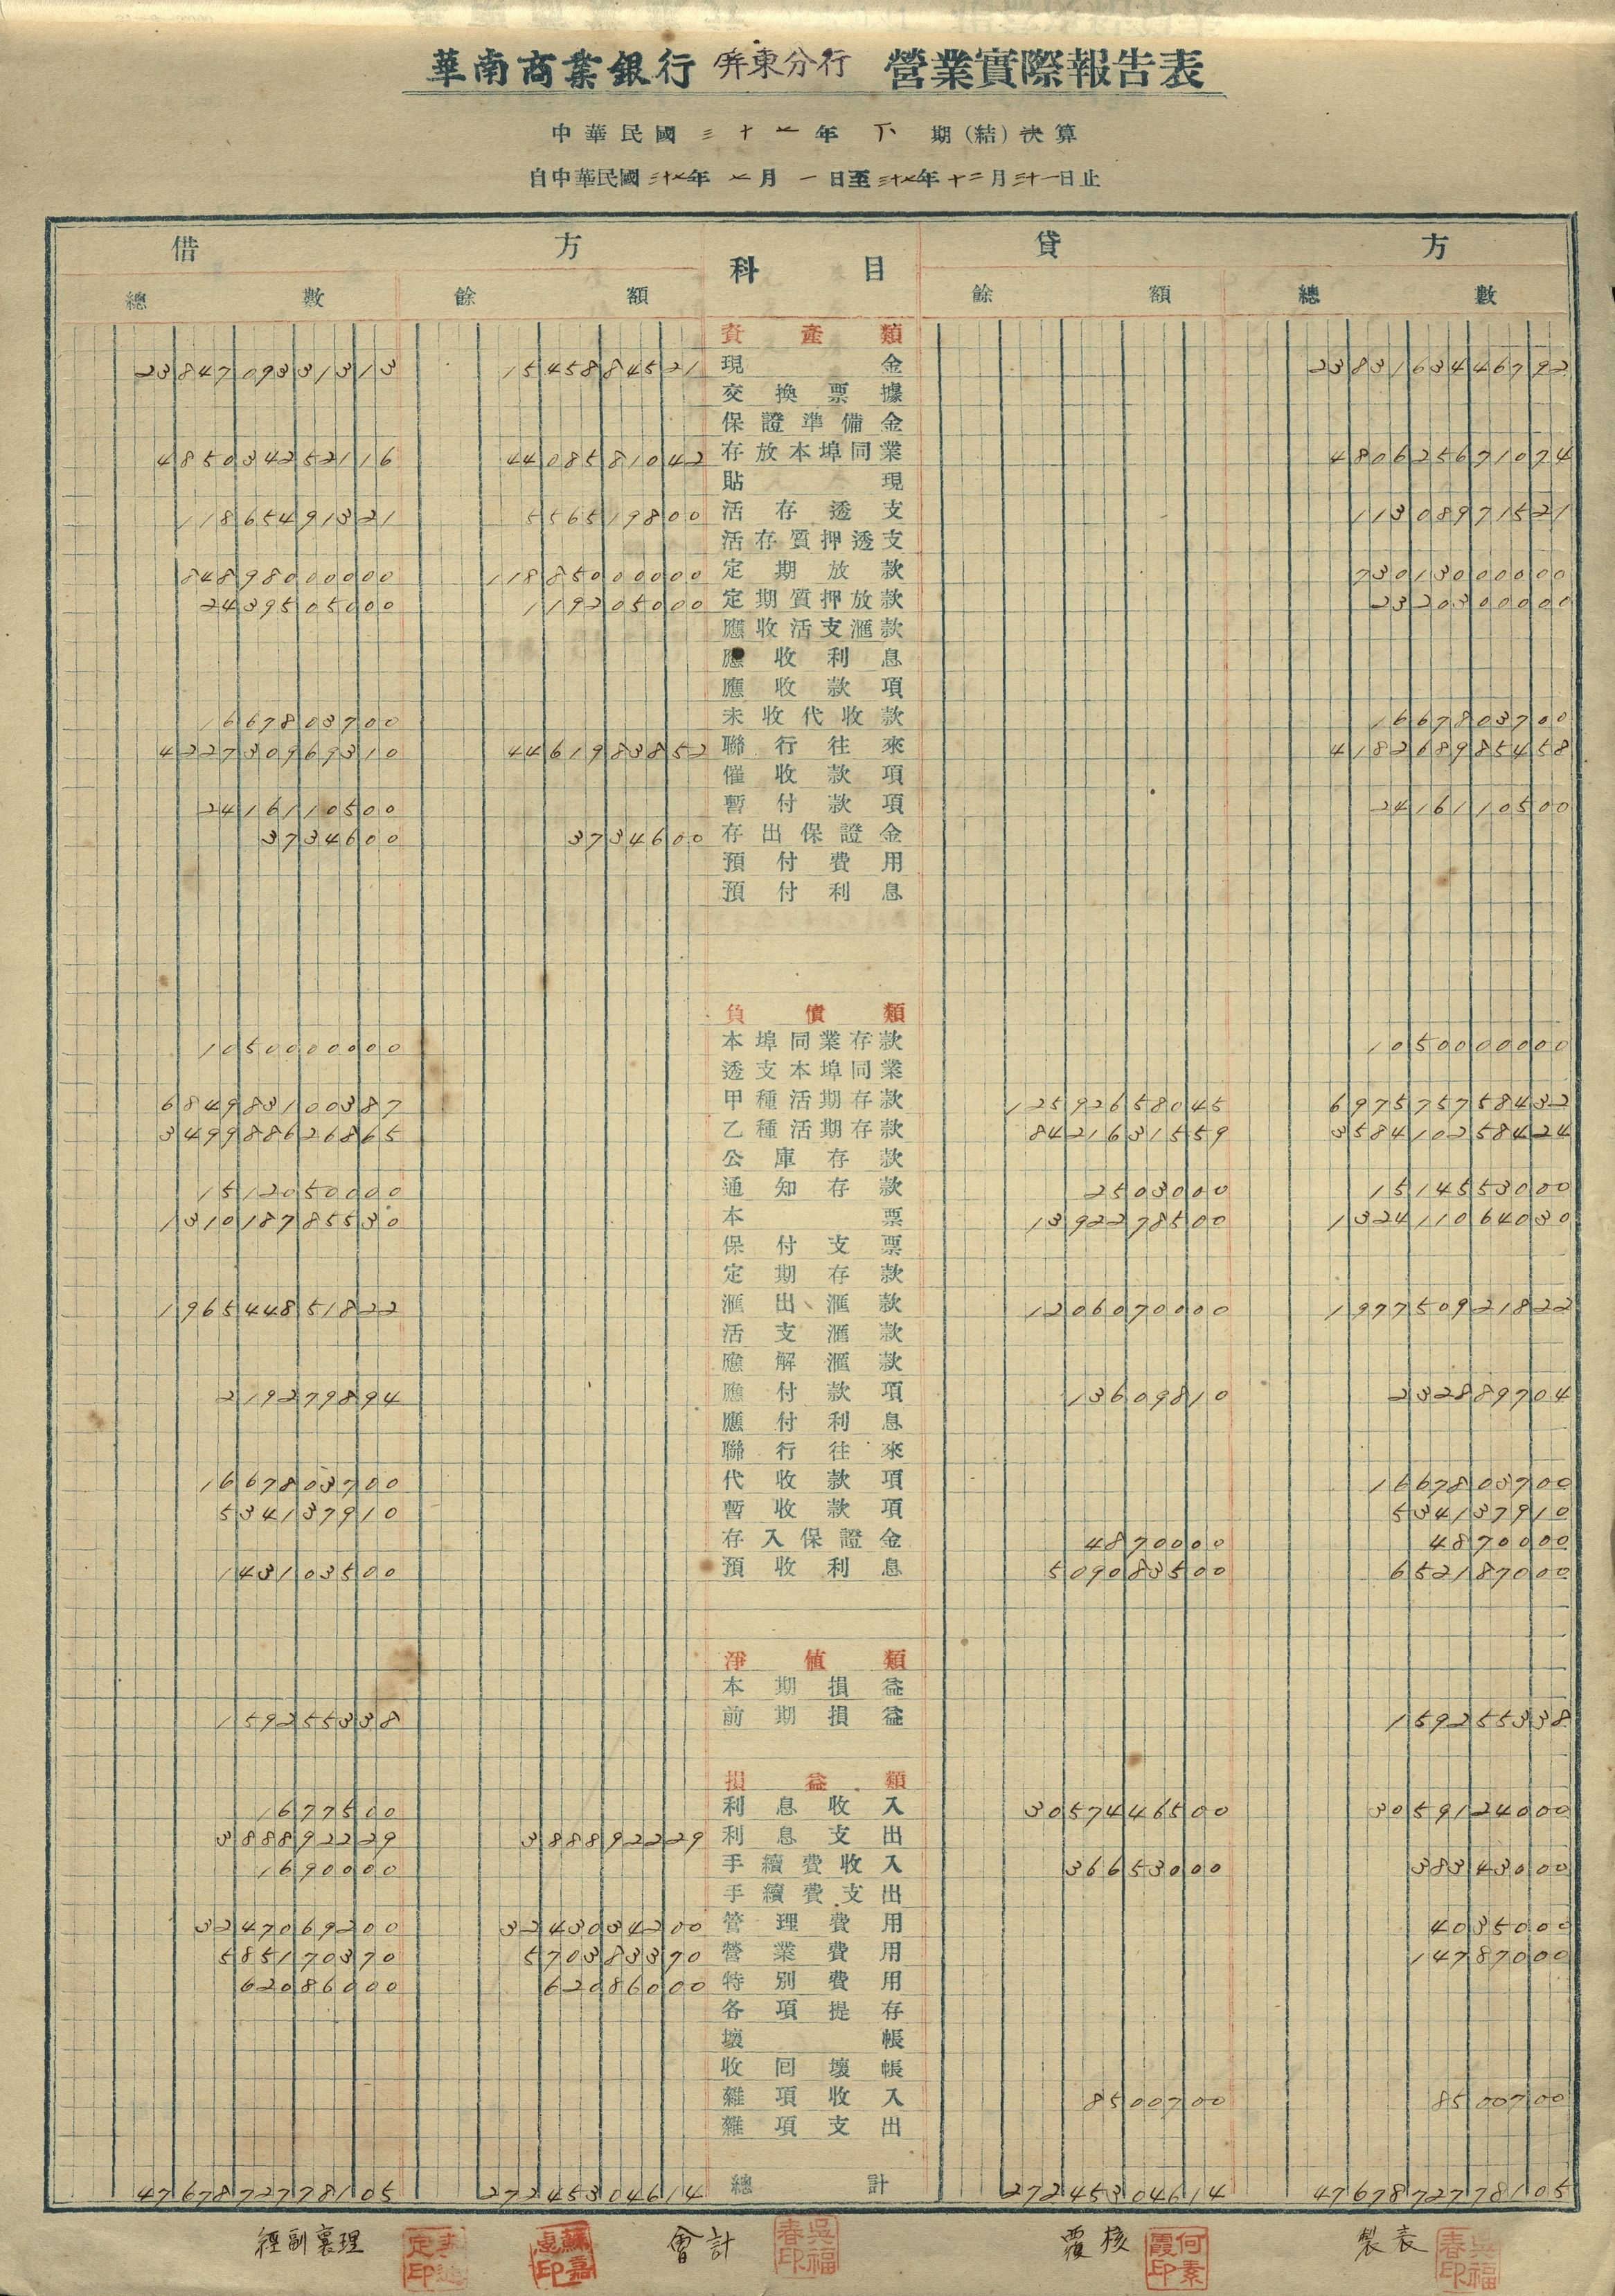 華南商業銀行 屏東分行 營業實際報告表
中華民國三十七年下期(結)決算
自中華民國三十七年七月一日至三十七年十二月三十一日止
借方 科目 貸方
總數 餘額 餘額 總數
資產類
2384709331313 1545884521 現金 2383163446792
交換票據
保證準備金
485034252116 4408581042 存放本埠同業 480625671074
貼現
11865491321 556519800 活存透支 11308971521
活存質押透支
84898000000 11885000000 定期放款 73013000000
2439505000 119205000 定期質押放款 2320300000
應收活支滙款
應收利息
應收款項
1667803700 未收代收款 1667803700
422730969310 4461983852 聯行往來 418268985458
催收款項
2416110500 暫付款項 2416110500
3734600 3734600 存出保證金
預付費用
預付利息
負債類
1050000000 本埠同業存款 1050000000
透支本埠同業
684983100387 甲種活期存款 12592658045 697575758432
349988626865 乙種活期存款 8421631559 358410258424
公庫存款
1512050000 通知存款 2503000 1514553000
131018785530 本票 1392278500 132411064030
保付支票
定期存款
196544851822 滙出滙款 1206070000 197750921822
活支滙款
應解滙款
219279894 應付款項 13609810 232889704
應付利息
聯行往來
1667803700 代收款項 1667803700
534137910 暫收款項 534137910
存入保證金 4870000 4870000
143103500 預收利息 509083500 652187000
淨值類
本期損益
159255338 前期損益 159255338
損益類
1677500 利息收入 3057446500 3059124000
388892229 388892229 利息支出
1690000 手續費收入 36653000 38343000
手續費支出
3247069200 3243034200 管理費用 4035000
585170370 570383370 營業費用 14787000
62086000 62086000 特別費用
各項提存
壞帳
收回壞帳
雜項收入 8500700 8500700
雜項支出
4767872778105 27245304614 總計 27245304614 4767872778105
經副襄理 會計 吳福春印 覆核 何素霞印 製表 吳福春印